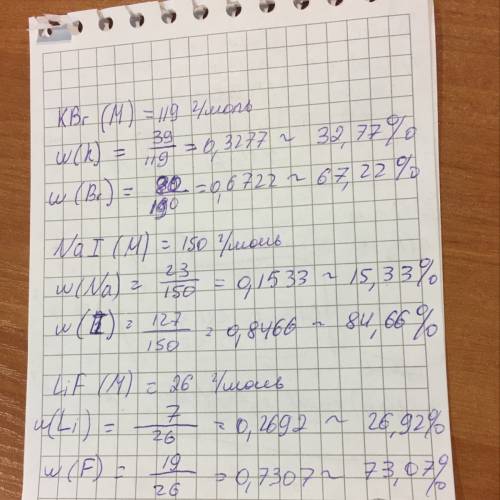 KBr (M) = 119 г/моль
w(K) = 39/119 = 0,3277 ~ 32,77%
w(Br) = 80/190 = 0,6722 ~ 67,22%
NaI (M) = 150 г/моль
w(Na) = 23/150 = 0,1533 ~ 15,33%
w(I) = 127/150 = 0,8466 ~ 84,66%
LiF (M) = 26 г/моль
w(Li) = 7/26 = 0,2692 ~ 26,92%
w(F) = 19/26 = 0,7307 ~ 73,07%